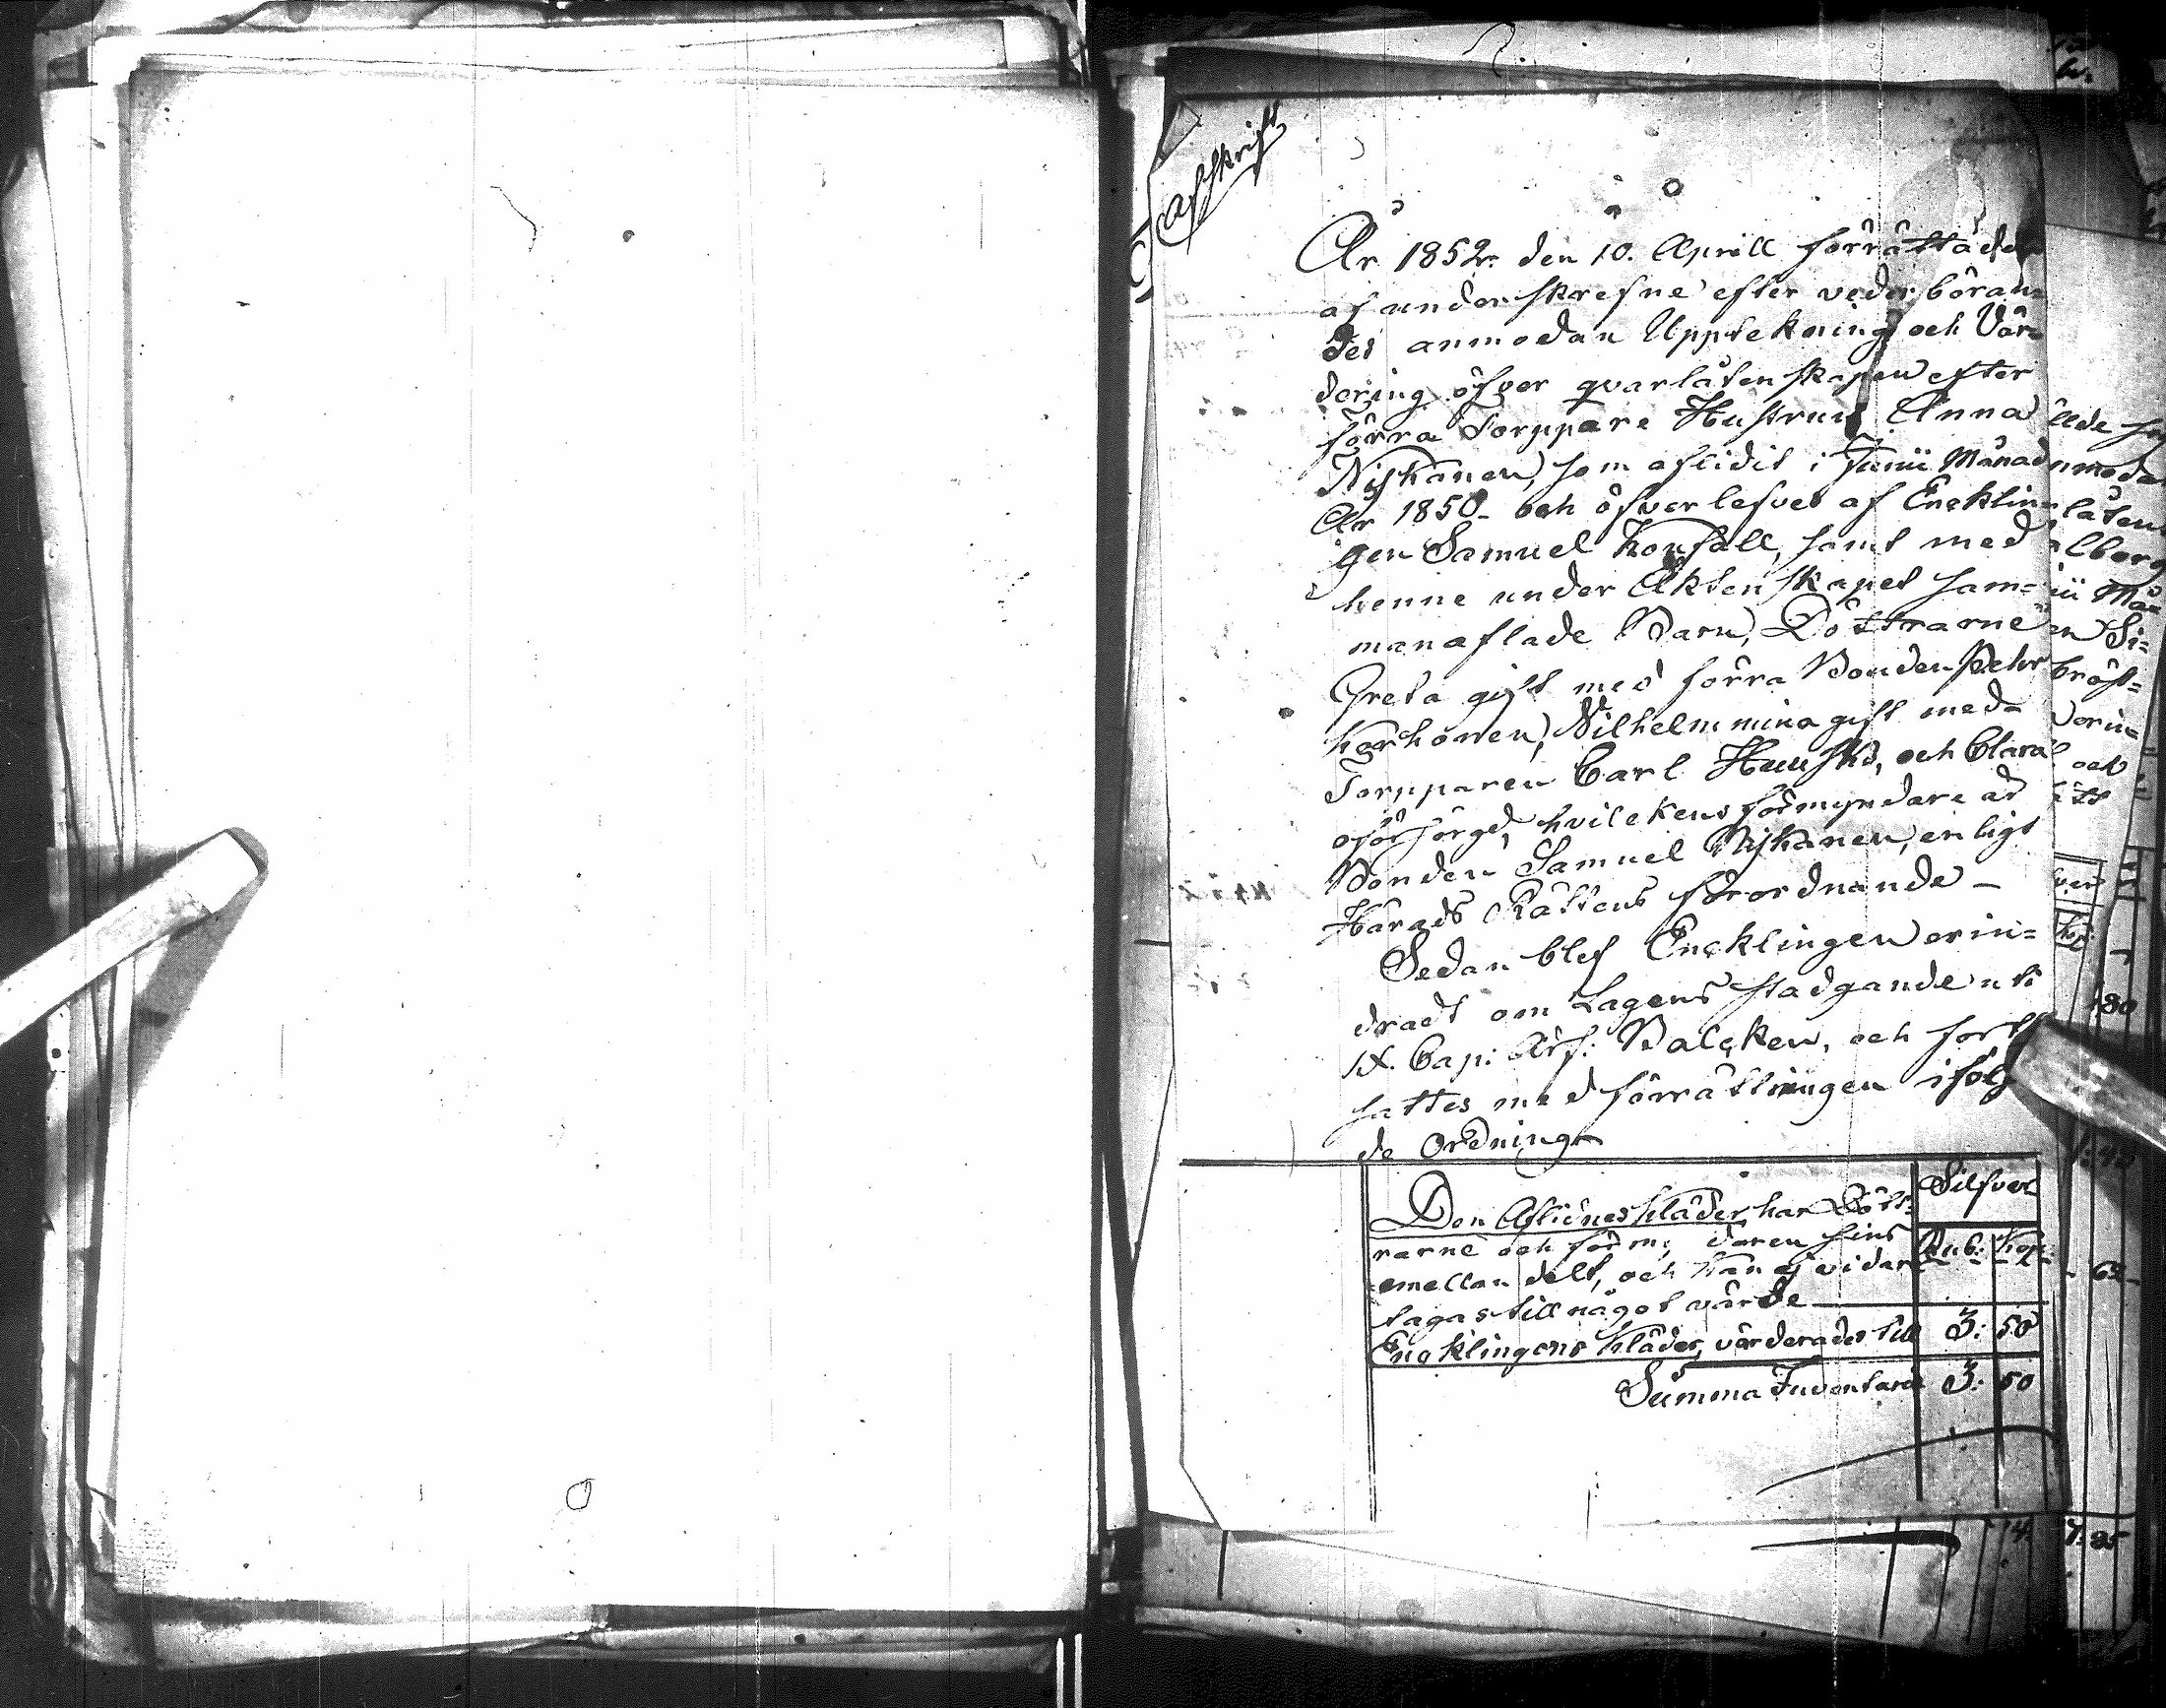 Afskrift
År 1852. den 10. Aprill förrättades
af underskrefne efter vederböran=
des anmodan Upptekning och Vär=
dering öfver qvarlåtenskapen efter
förra Torppare Hustrun Anna
Niskanen, som aflidit i Junii Månad
År 1850 och öfverlefvet af Encklin=
gen Samuel Konsall, samt med
henne under Äktenskapet sam=
manaflade Barn, Döttrarne
Greta gift med förra Bonden Pehr
Korhonen, Vilhelmmina gift med
Torpparen Carl Huusko, och Clara
oförsörgd, hvilckens förmyndare är
Bonden Samuel Niskanen, enligt
Härads Rättens förordnande —
Sedan blef Encklingen erin=
dradt om Lagens stadgande uti
IX. Cap: Ärf: Balcken, och fort
sattes med förrättningen i följ
de Ordning
Silfver
Den Aflidnes kläder har Dött=
rarne och förmyndaren sins
Rub: Kop:
emellan delt, och kan ej vidare
tagas till något värde
Encklingens kläder, värderades till 3: 50
Summa Inventarie 3: 50